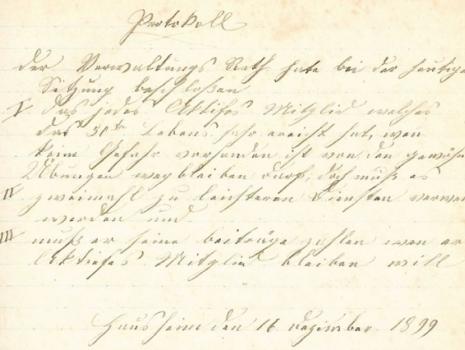 Protokoll
der Verwaltungs Rath hate bei der heutige
Sitzung beschloßen
I das jedes Aktifes Mitglid welches
das 50te Lebens Jahr ereicht hat, wen
keine Gefahr vorhanden ist von den gewöhn
Übungen weg bleiben darf, doch muß es
II zweimahl zu leichteren Diensten verwen
werden und
III muß er seine beiträge zahlen wen er
Aktifes Mitglid bleiben will
Hausheim den 16 Dezimber 1899